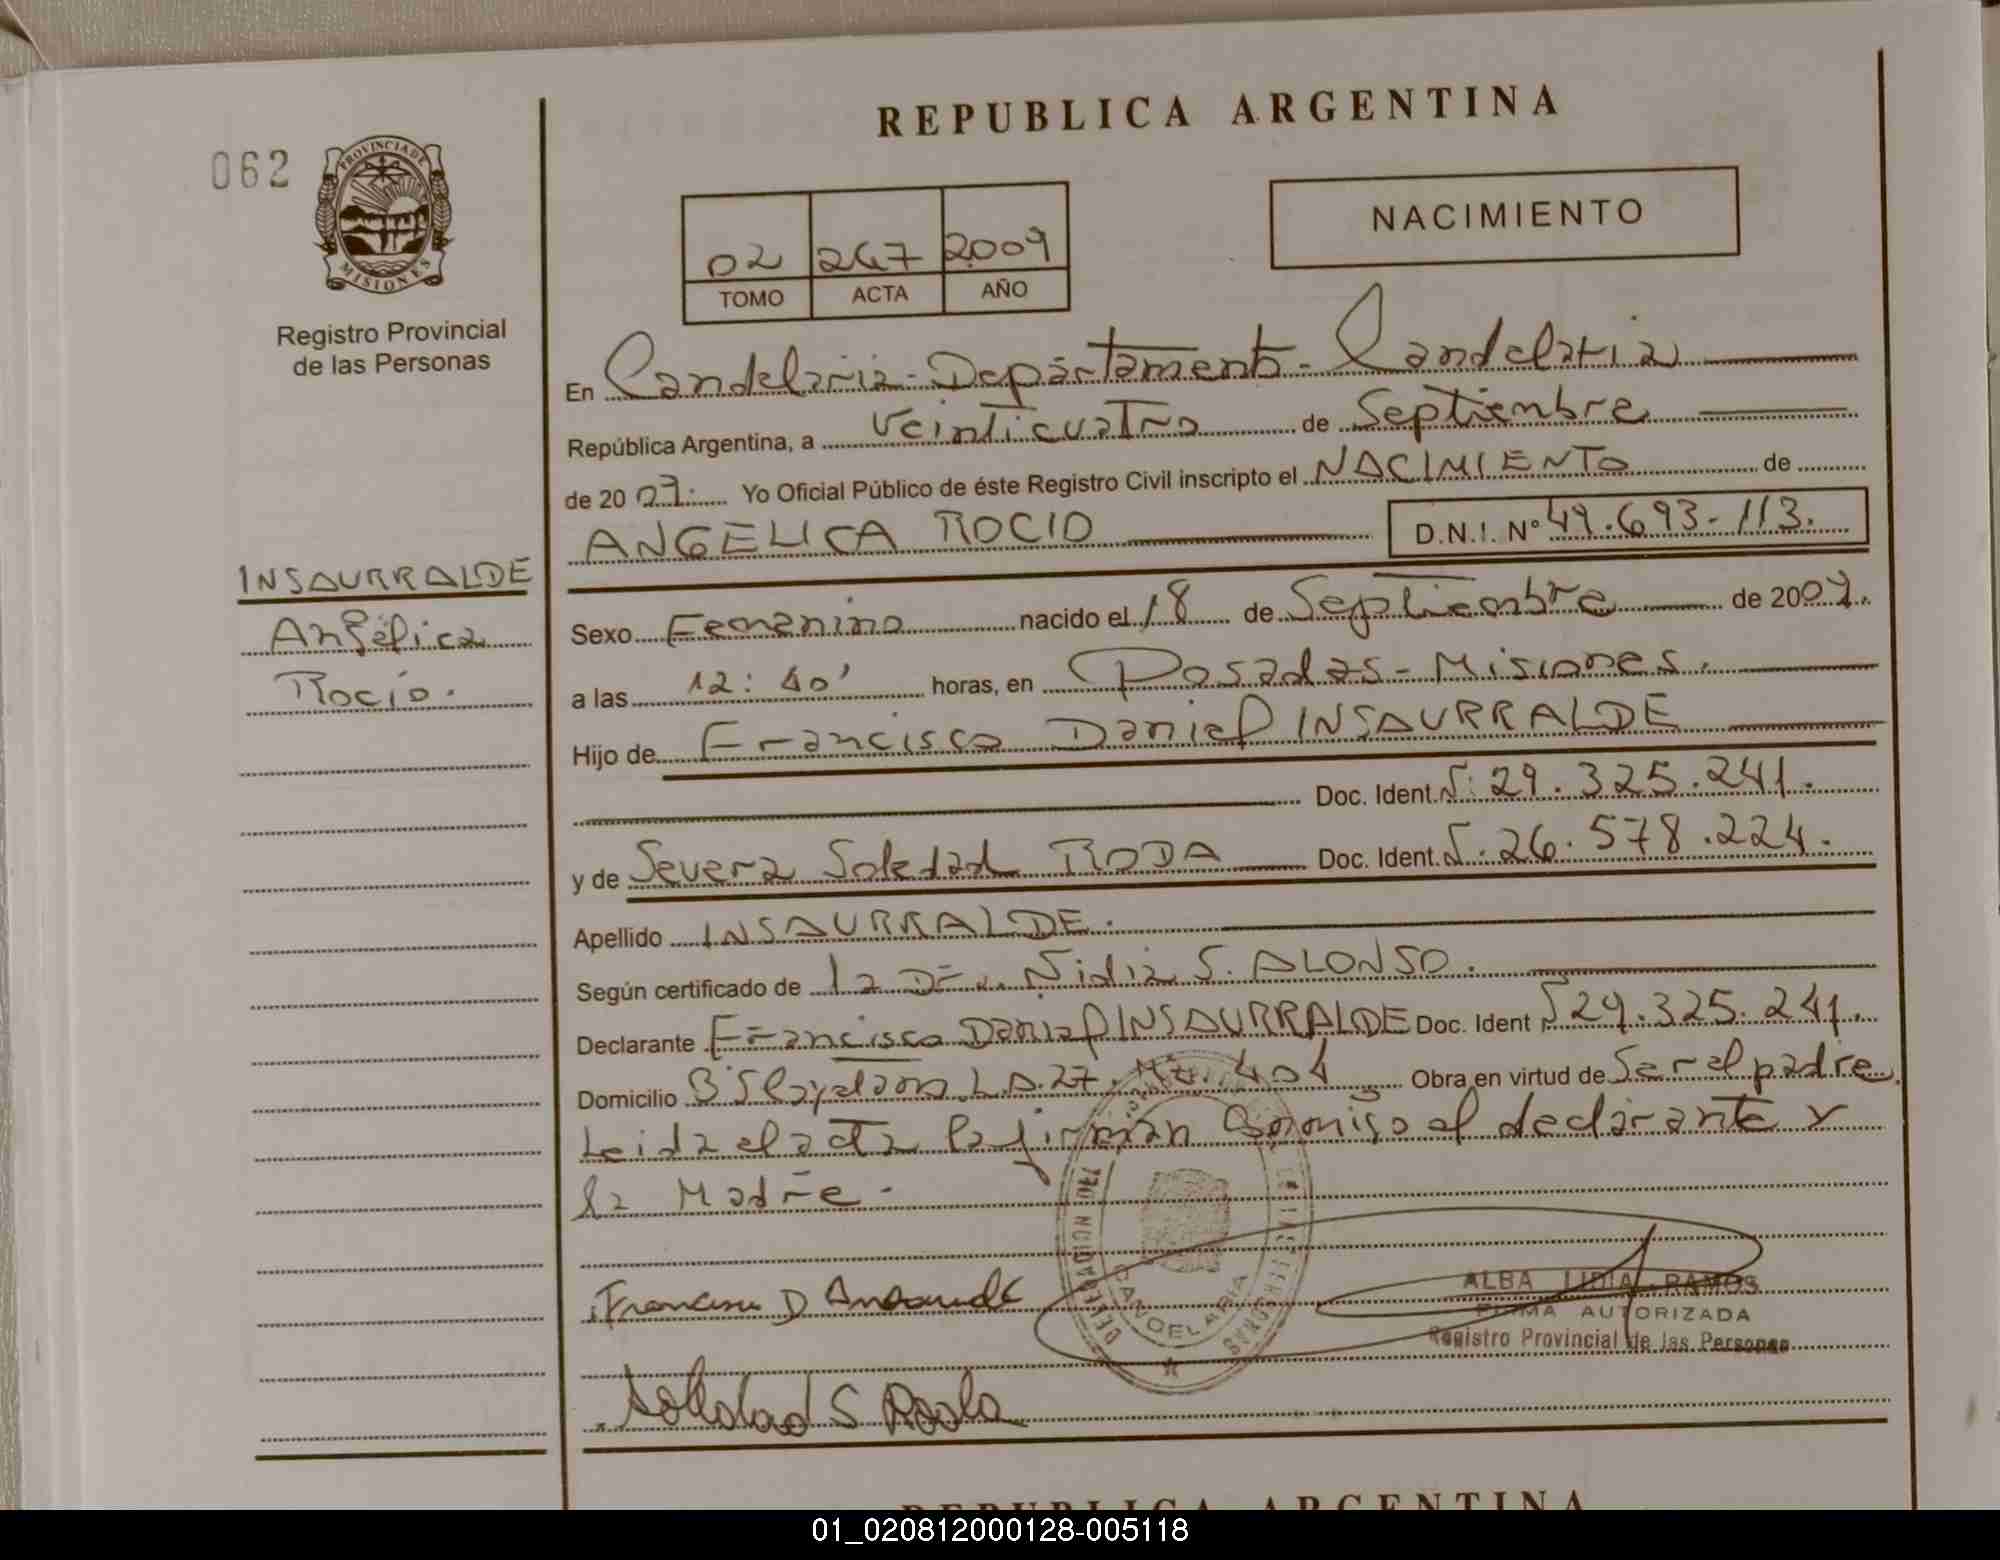 REPUBLICA ARGENTINA
062
PROVINCIA DE
MISIONES
Registro Provincial
de las Personas
02 247 2009
TOMO ACTA AÑO
NACIMIENTO
En Candelaria - Departamento - Candelaria
República Argentina, a Veinticuatro de Septiembre
de 2009. Yo Oficial Público de éste Registro Civil inscripto el NACIMIENTO de
ANGELICA ROCIO D.N.I. Nº 49.693.113.
INSAURRALDE
Angélica
Rocío.
Sexo Femenino nacido el 18 de Septiembre de 2009.
a las 12:40' horas, en Posadas - Misiones.
Hijo de Francisco Daniel INSAURRALDE
Doc. Ident. Nº 29.325.241.
y de Severa Soledad RODA Doc. Ident. Nº 26.578.224.
Apellido INSAURRALDE.
Según certificado de la Dra. Nidia S. ALONSO.
Declarante Francisco Daniel INSAURRALDE Doc. Ident Nº 29.325.241.
Domicilio Bº L.D.27. Mz. 404 Obra en virtud de Ser el padre.
Leida el acta la firman Conmigo el declarante y
la Madre.
DELEGACION
CANDELARIA
ALBA LIDIA RAMOS
FIRMA AUTORIZADA
Registro Provincial de las Personas
Francisco D
Soledad S Roda
REPUBLICA ARGENTINA
01_020812000128-005118